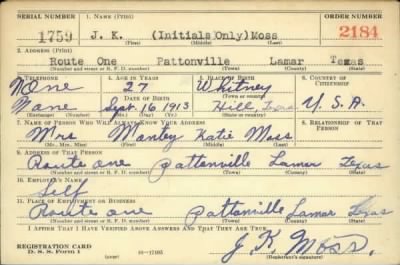 SERIAL NUMBER 1. NAME (Print) ORDER NUMBER
1759 J. K. (Initials Only) Moss 2184
(First) (Middle) (Last)
2. ADDRESS (Print)
Route One Pattonville Lamar Texas
(Number and street or R. F. D. number) (Town) (County) (State)
3. TELEPHONE 4. AGE IN YEARS 5. PLACE OF BIRTH 6. COUNTRY OF CITIZENSHIP
None 27 Whitney
DATE OF BIRTH
None Sept. 16, 1913 Hill, Texas U. S. A.
(Exchange) (Number) (Mo.) (Day) (Yr.) (State or country)
7. NAME OF PERSON WHO WILL ALWAYS KNOW YOUR ADDRESS 8. RELATIONSHIP OF THAT PERSON
Mrs Katie Moss
(Mr., Mrs., Miss) (First) (Middle) (Last)
9. ADDRESS OF THAT PERSON
Route one Pattonville Lamar Texas
(Number and street or R. F. D. number) (Town) (County) (State)
10. EMPLOYER'S NAME
Self
11. PLACE OF EMPLOYMENT OR BUSINESS
Route one Pattonville Lamar Texas
(Number and street or R. F. D. number) (Town) (County) (State)
I AFFIRM THAT I HAVE VERIFIED ABOVE ANSWERS AND THAT THEY ARE TRUE.
J. K. Moss.
REGISTRATION CARD
D. S. S. Form 1 (Registrant's signature)